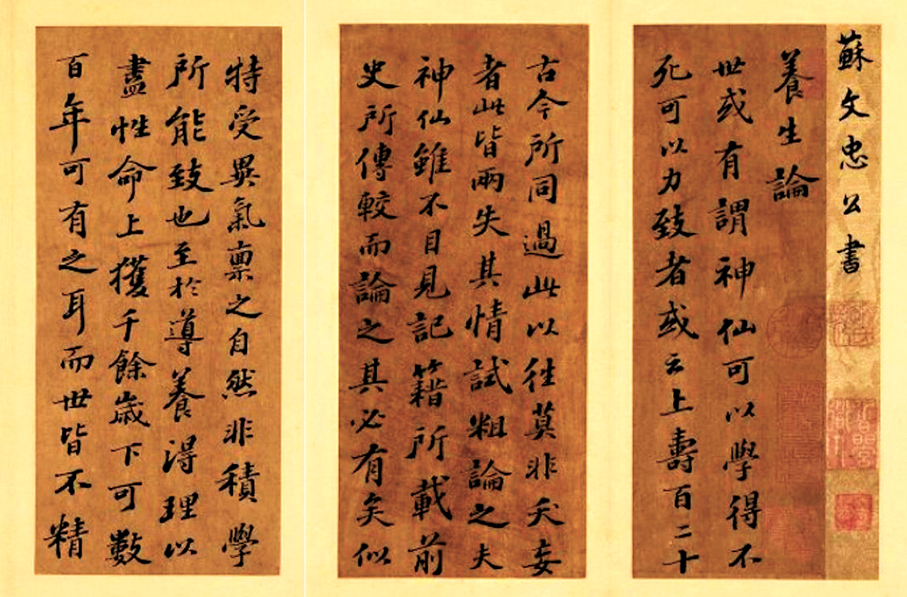 蘇文忠公書
養生論
世或有謂神仙可以學得不
死可以力致者或云上壽百二十
古今所同過此以往莫非夭妄
者此皆兩失其情試粗論之夫
神仙雖不目見記籍所載前
史所傳較而論之其必有矣似
特受異氣稟之自然非積學
所能致也至於導養得理以
盡性命上獲千餘歲下可數
百年可有之耳而世皆不精